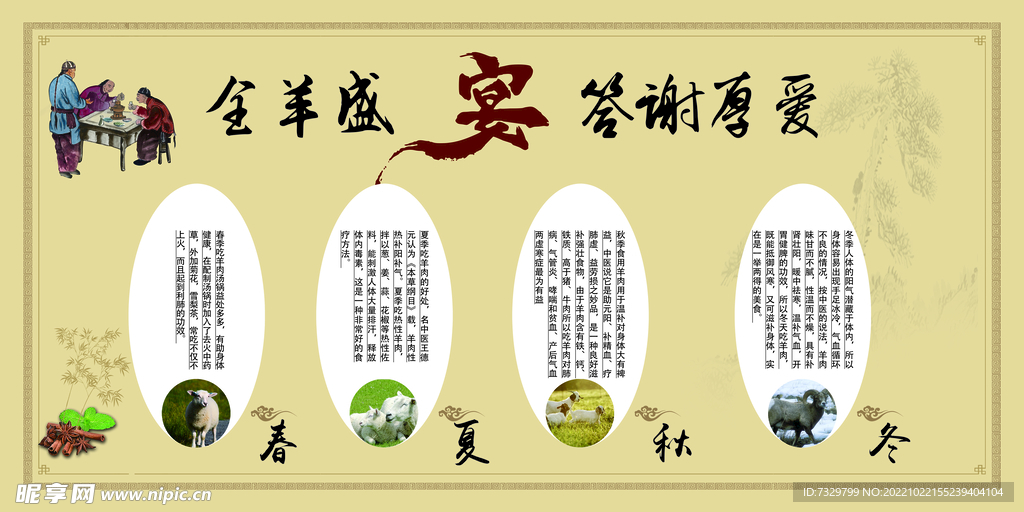 全羊盛宴 答谢厚爱
春季吃羊肉汤锅益处多多，有助身体
健康，在配制汤锅时加入了去火中药
草，外加菊花，雪梨茶，常吃不仅不
上火，而且起到利肺的功效。
春
夏季吃羊肉的好处，名中医王德
元认为《本草纲目》载，羊肉性
热补阳补气。夏季吃热性羊肉，
拌以葱、姜、蒜、花椒等热性佐
料，能刺激人体大量排汗，释放
体内毒素，这是一种非常好的食
疗方法。
夏
秋季食用羊肉用于温补对身体大有裨
益，中医说它是助元阳、补精血、疗
肺虚、益劳损之妙品，是一种良好滋
补强壮食物，由于羊肉含有铁、钙、
铁质、高于猪、牛肉所以吃羊肉对肺
病、气管炎、哮喘和贫血、产后气血
两虚寒症最为有益
秋
冬季人体的阳气潜藏于体内，所以
身体容易出现手足冰冷，气血循环
不良的情况，按中医的说法，羊肉
味甘而不腻，性温而不燥，具有补
肾壮阳，暖中祛寒，温补气血，开
胃健脾的功效，所以冬天吃羊肉，
既能抵御风寒，又可滋补身体，实
在是一举两得的美食。
冬
昵享网 www.nipic.cn
ID:7329799 NO:20221022155239404104